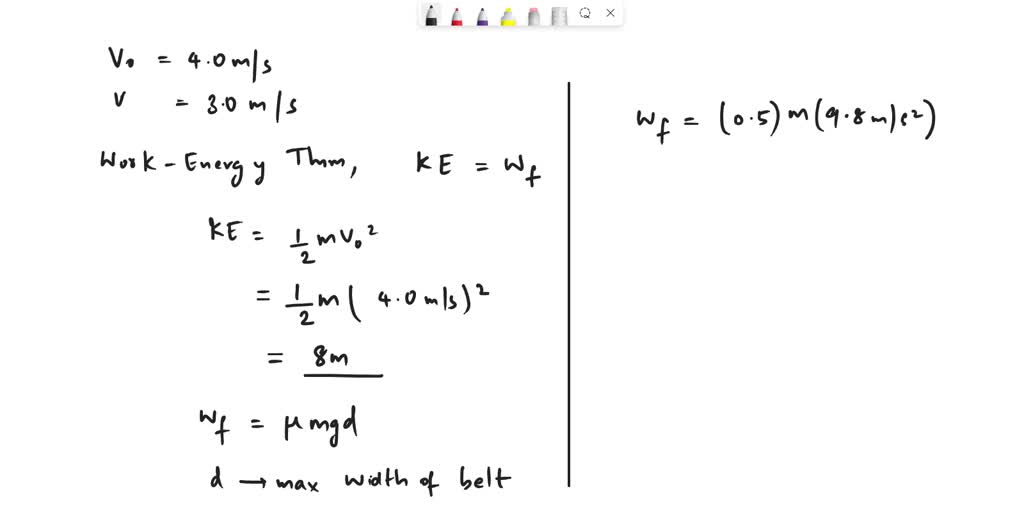 V₀ = 4.0 m/s
V = 3.0 m/s
Work - Energy Thm, KE = Wf
KE = 1/2 m V₀²
= 1/2 m ( 4.0 m/s)²
= 8m
Wf = μmgd
d → max width of belt
Wf = (0.5) m (9.8 m/s²)